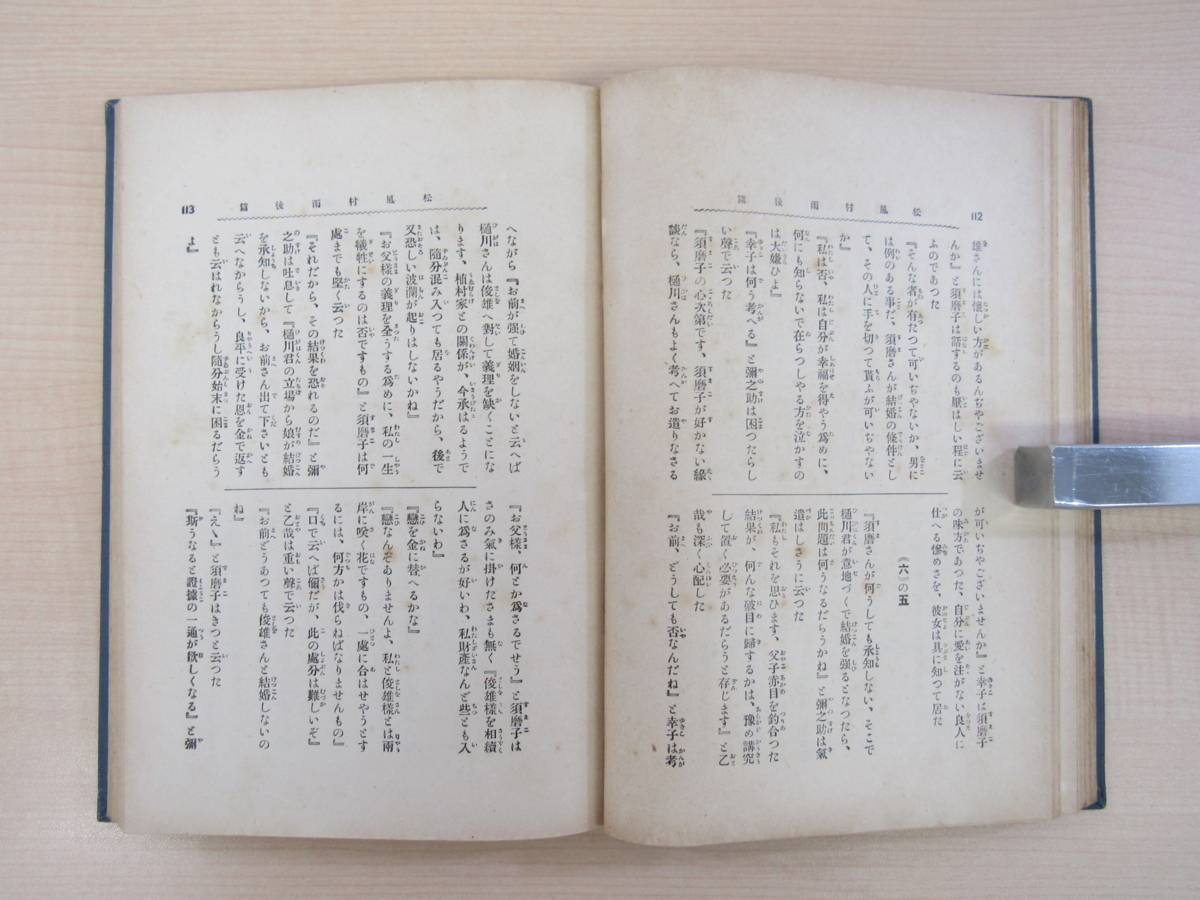 112
松風村雨後篇
雄さんには懐しい方があるんぢやございませ
んか』と須磨子は話するのも厭はしい程に云
ふのであつた
『そんな者が有たつて可いぢやないか、男に
は例のある事だ、須磨さんが結婚の條件とし
て、その人に手を切つて貰ふが可いぢやない
か』
『私は否、私は自分が幸福を得やう爲めに、
何にも知らないで在らつしやる方を泣かすの
は大嫌ひよ』
『幸子は何う考へる』と彌之助は困つたらし
い聲で云つた
『須磨子の心次第です、須磨子が好かない緣
談なら、樋川さんもよく考へてお遣りなさる
が可いぢやございませんか』と幸子は須磨子
の味方であつた、自分に愛を注がない良人に
仕へる慘めさを、彼女は具に知つて居た
（六）の五
『須磨さんが何うしても承知しない、そこで
樋川君が意地づくで結婚を强るとなつたら、
此問題は何うなるだらうかね』と彌之助は氣
遣はしさうに云つた
『私もそれを思ひます、父子赤目を釣合つた
結果が、何んな破目に歸するかは、豫め講究
して置く必要があるだらうと存じます』と乙
哉も深く心配した
『お前、どうしても否なんだね』と幸子は考
113
松風村雨後篇
へながら『お前が强て婚姻をしないと云へば
樋川さんは俊雄へ對して義理を缺くことにな
ります、植村家との關係が、今承はるようで
は、隨分混み入つても居るやうだから、後で
又恐しい波瀾が起りはしないかね』
『お父樣の義理を全うする爲めに、私の一生
を犠牲にするのは否ですもの』と須磨子は何
處までも堅く云つた
『それだから、その結果を恐れるのだ』と彌
之助は吐息して『樋川君の立場から娘が結婚
を承知しないから、お前さん出て下さいとも
云へなからうし、良平に受けた恩を金で返す
とも云はれなからうし隨分始末に困るだらう
よ』
『お父樣、何とか爲さるでせう』と須磨子は
さのみ氣に掛けたさまも無く『俊雄樣を相續
人に爲さるが好いわ、私財產なんど些とも入
らないわ』
『戀を金に替へるかな』
『戀なんぞありませんよ、私と俊雄樣とは兩
岸に咲く花ですもの、一處に合はせやうとす
るには、何方かは伐らねばなりませんもの』
『口で云へば爾だが、此の處分は難しいぞ』
と乙哉は重い聲で云つた
『お前どうあつても俊雄さんと結婚しないの
ね』
『えゝ』と須磨子はきつと云つた
『斯うなると證據の一通が欲しくなる』と彌